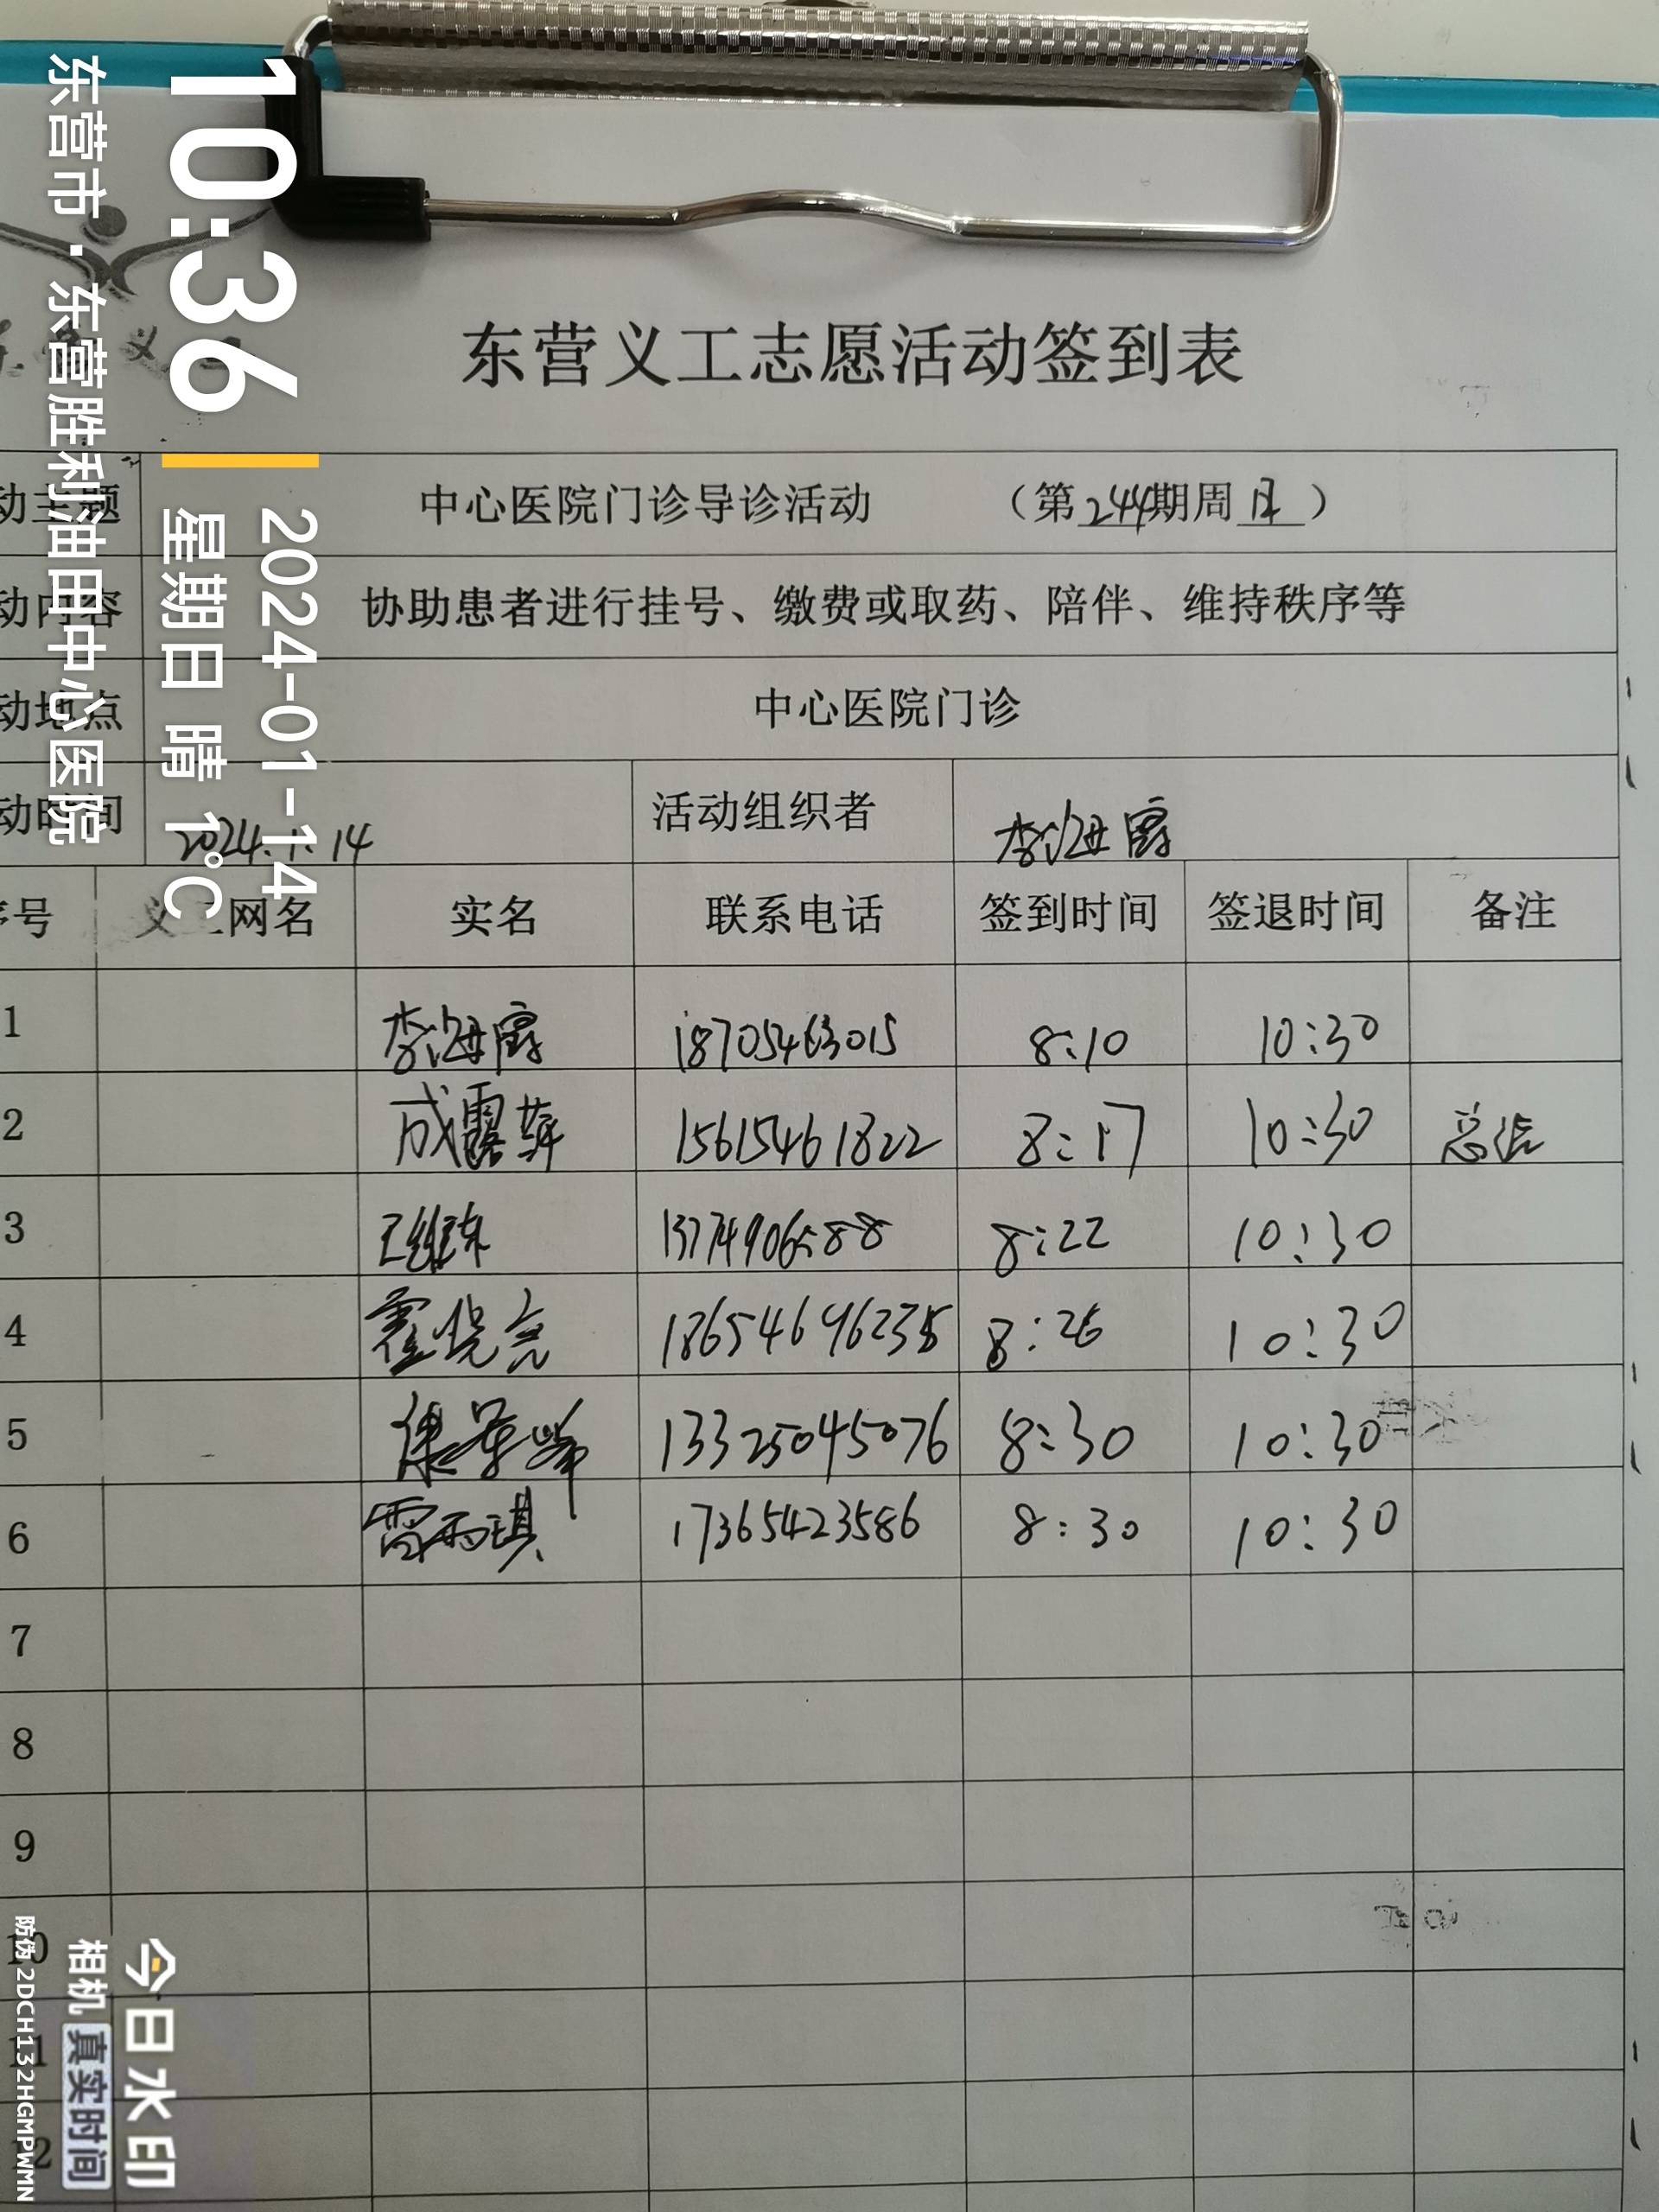 东营义工志愿活动签到表
动主题 中心医院门诊导诊活动 （第244期周日）
动内容 协助患者进行挂号、缴费或取药、陪伴、维持秩序等
动地点 中心医院门诊
动时间 2024.1.14 活动组织者 李海霞
序号 义工网名 实名 联系电话 签到时间 签退时间 备注
1 李海霞 18705463015 8:10 10:30
2 成露萍 15615461822 8:17 10:30
3 13774906588 8:22 10:30
4 霍悦亮 8:26 10:30
5 13325045076 8:30 10:30
6 雷雨琪 17365423586 8:30 10:30
7
8
9
10
11
12
10:36
2024-01-14
星期日 晴 1℃
东营市·东营胜利油田中心医院
今日水印
相机 真实时间
防伪 2DCH132HGMPWMN